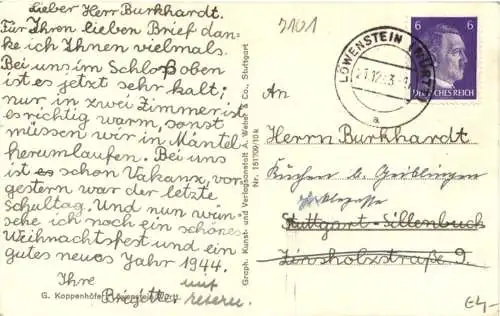 Lieber Herr Burkhardt.
Für Ihren lieben Brief dan-
ke ich Ihnen vielmals.
Bei uns im Schloß oben
ist es jetzt sehr kalt;
nur in zwei Zimmer ist
es richtig warm, sonst
müssen wir in Mäntel
herumlaufen. Bei uns
ist es schon Vakanz, vor-
gestern war der letzte
Schultag. Und nun wün-
sche ich noch ein schönes
Weihnachtsfest und ein
gutes neues Jahr 1944.
Ihre
Brigitte.
G. Koppenhöfer, Löwenstein Württ.
Graph. Kunst- und Verlagsanstalt A. Weber & Co., Stuttgart
Nr. 151109/10 k
3101
LÖWENSTEIN (WÜRTT)
a
6 6
DEUTSCHES REICH
An
Herrn Burkhardt
Kuchen b. Geislingen
Stuttgart-Sillenbuch
Linsholzstraße 9.